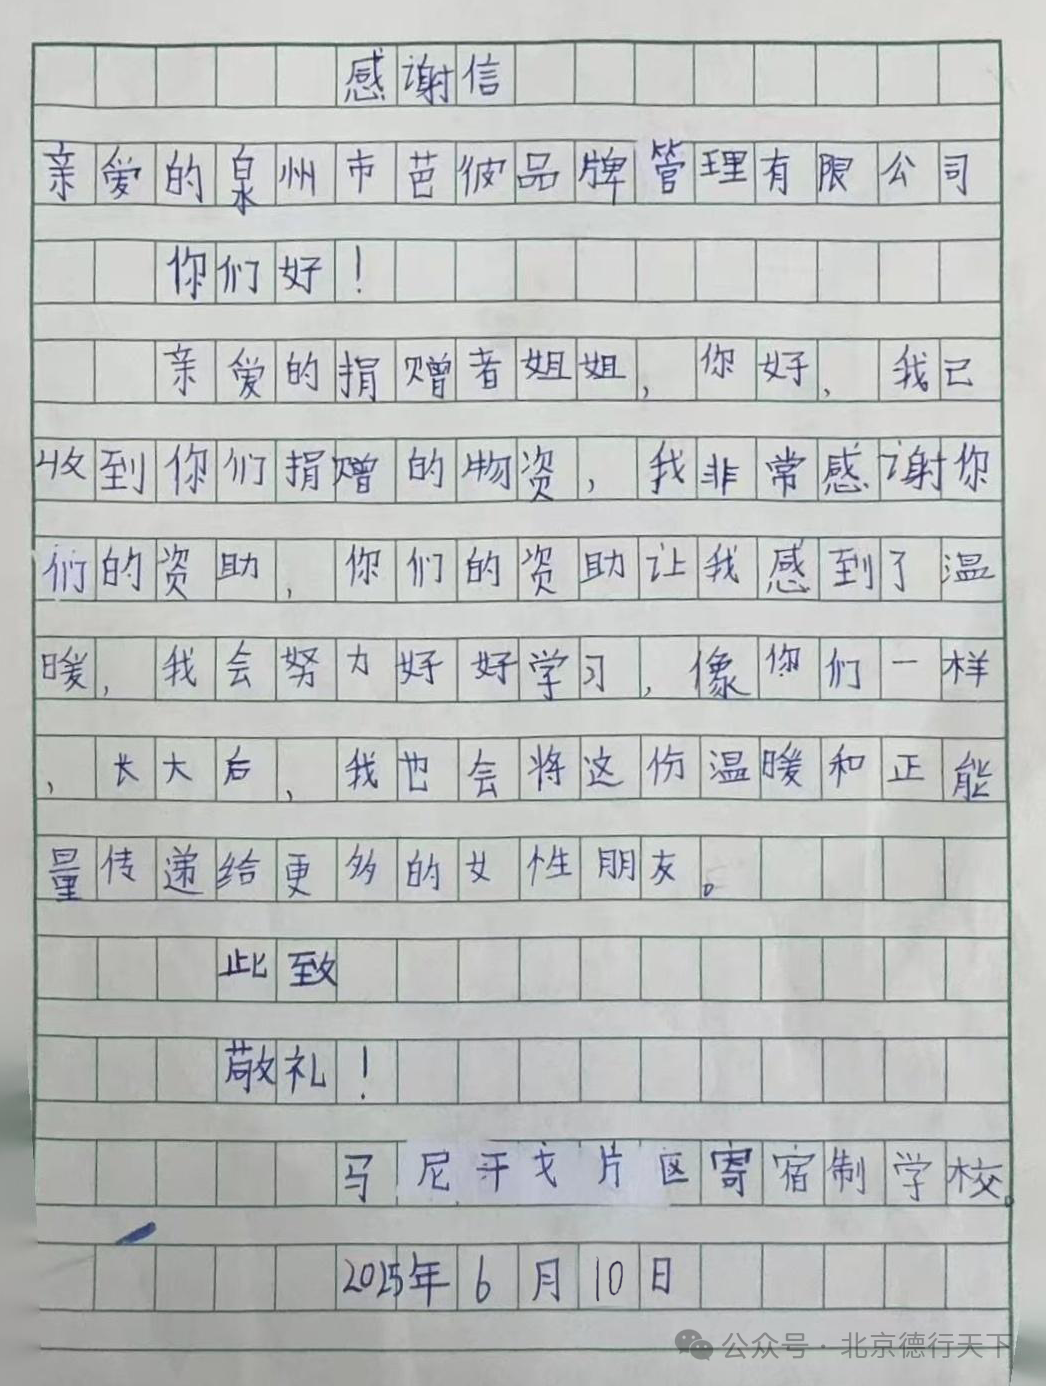 感谢信
亲爱的泉州市芭彼品牌管理有限公司
你们好！
亲爱的捐赠者姐姐，你好，我已
收到你们捐赠的物资，我非常感谢你
们的资助，你们的资助让我感到了温
暖，我会努力好好学习，像你们一样
，长大后，我也会将这份温暖和正能
量传递给更多的女性朋友。
此致
敬礼！
马尼干戈片区寄宿制学校。
2025年6月10日
公众号·北京德行天下